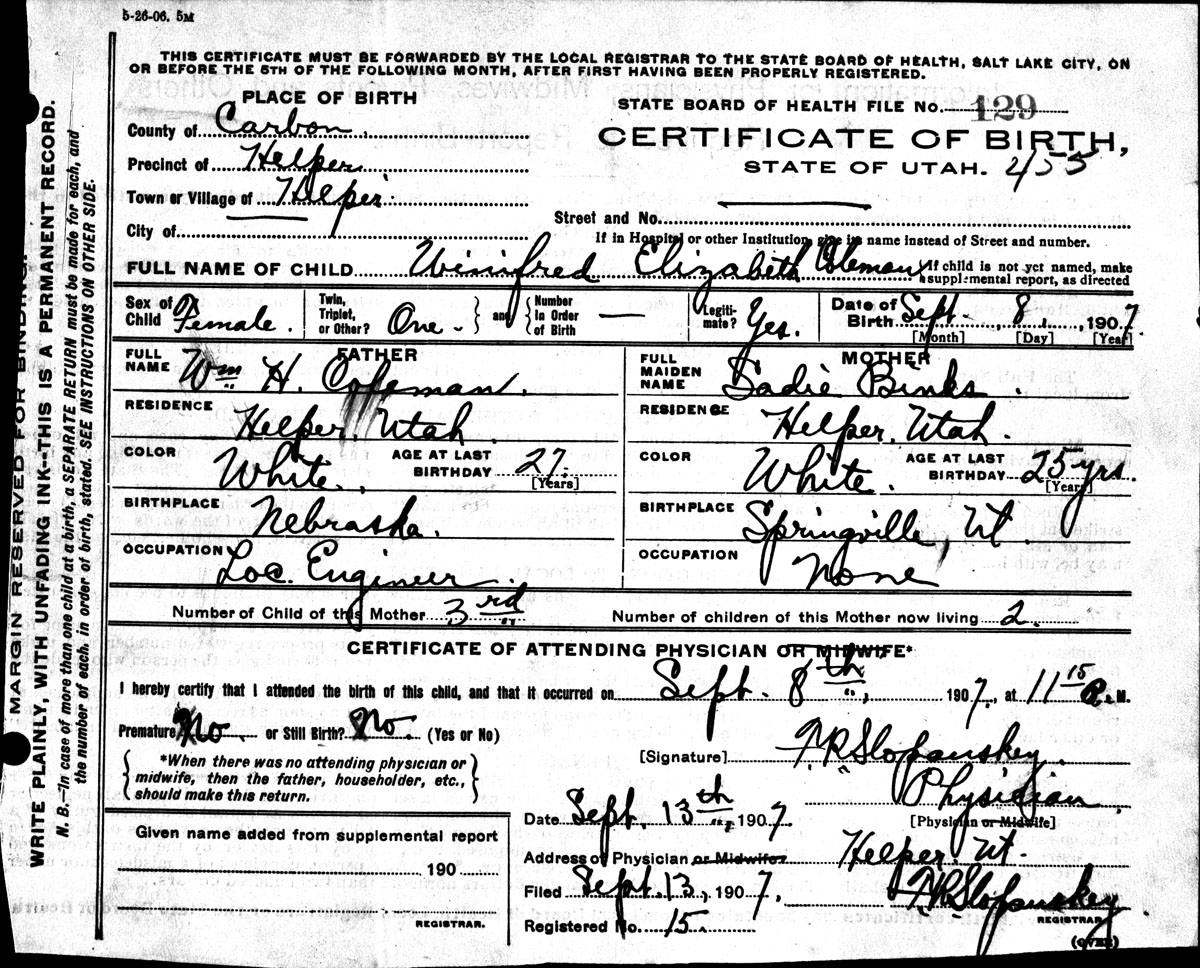 5-26-06. 5M
THIS CERTIFICATE MUST BE FORWARDED BY THE LOCAL REGISTRAR TO THE STATE BOARD OF HEALTH, SALT LAKE CITY, ON
OR BEFORE THE 5TH OF THE FOLLOWING MONTH, AFTER FIRST HAVING BEEN PROPERLY REGISTERED.
MARGIN RESERVED FOR BINDING.
WRITE PLAINLY, WITH UNFADING INK--THIS IS A PERMANENT RECORD.
N. B.—In case of more than one child at a birth, a SEPARATE RETURN must be made for each, and
the number of each, in order of birth, stated. SEE INSTRUCTIONS ON OTHER SIDE.
PLACE OF BIRTH
County of Carbon
Precinct of Helper
Town or Village of Helper
City of
STATE BOARD OF HEALTH FILE No. 129
CERTIFICATE OF BIRTH,
STATE OF UTAH. 2/55
Street and No.
If in Hospital or other Institution, give its name instead of Street and number.
FULL NAME OF CHILD Winifred Elizabeth Coleman
If child is not yet named, make
supplemental report, as directed
Sex of Child Female. Twin, Triplet, or Other? One - and Number In Order of Birth — Legiti-mate? Yes. Date of Birth Sept. 8, 1907
[Month] [Day] [Year]
FATHER
FULL NAME Wm H. Coleman.
RESIDENCE Helper, Utah
COLOR White. AGE AT LAST BIRTHDAY 27.
[Years]
BIRTHPLACE Nebraska.
OCCUPATION Loc. Engineer.
MOTHER
FULL MAIDEN NAME Sadie Binks.
RESIDENCE Helper, Utah.
COLOR White. AGE AT LAST BIRTHDAY 25 yrs.
[Years]
BIRTHPLACE Springville, Ut.
OCCUPATION None
Number of Child of this Mother 3rd Number of children of this Mother now living 2.
CERTIFICATE OF ATTENDING PHYSICIAN OR MIDWIFE*
I hereby certify that I attended the birth of this child, and that it occurred on Sept. 8th, 1907, at 11 15 P. M.
Premature No. or Still Birth? No. (Yes or No)
*When there was no attending physician or
midwife, then the father, householder, etc.,
should make this return.
[Signature] F.R. Slopanskey.
Physician
[Physician or Midwife]
Date Sept. 13th, 1907.
Address of Physician or Midwife Helper. Ut.
Filed Sept. 13, 1907, F.R. Slopanskey
REGISTRAR.
Registered No. 15.
(OVER)
Given name added from supplemental report
190
REGISTRAR.